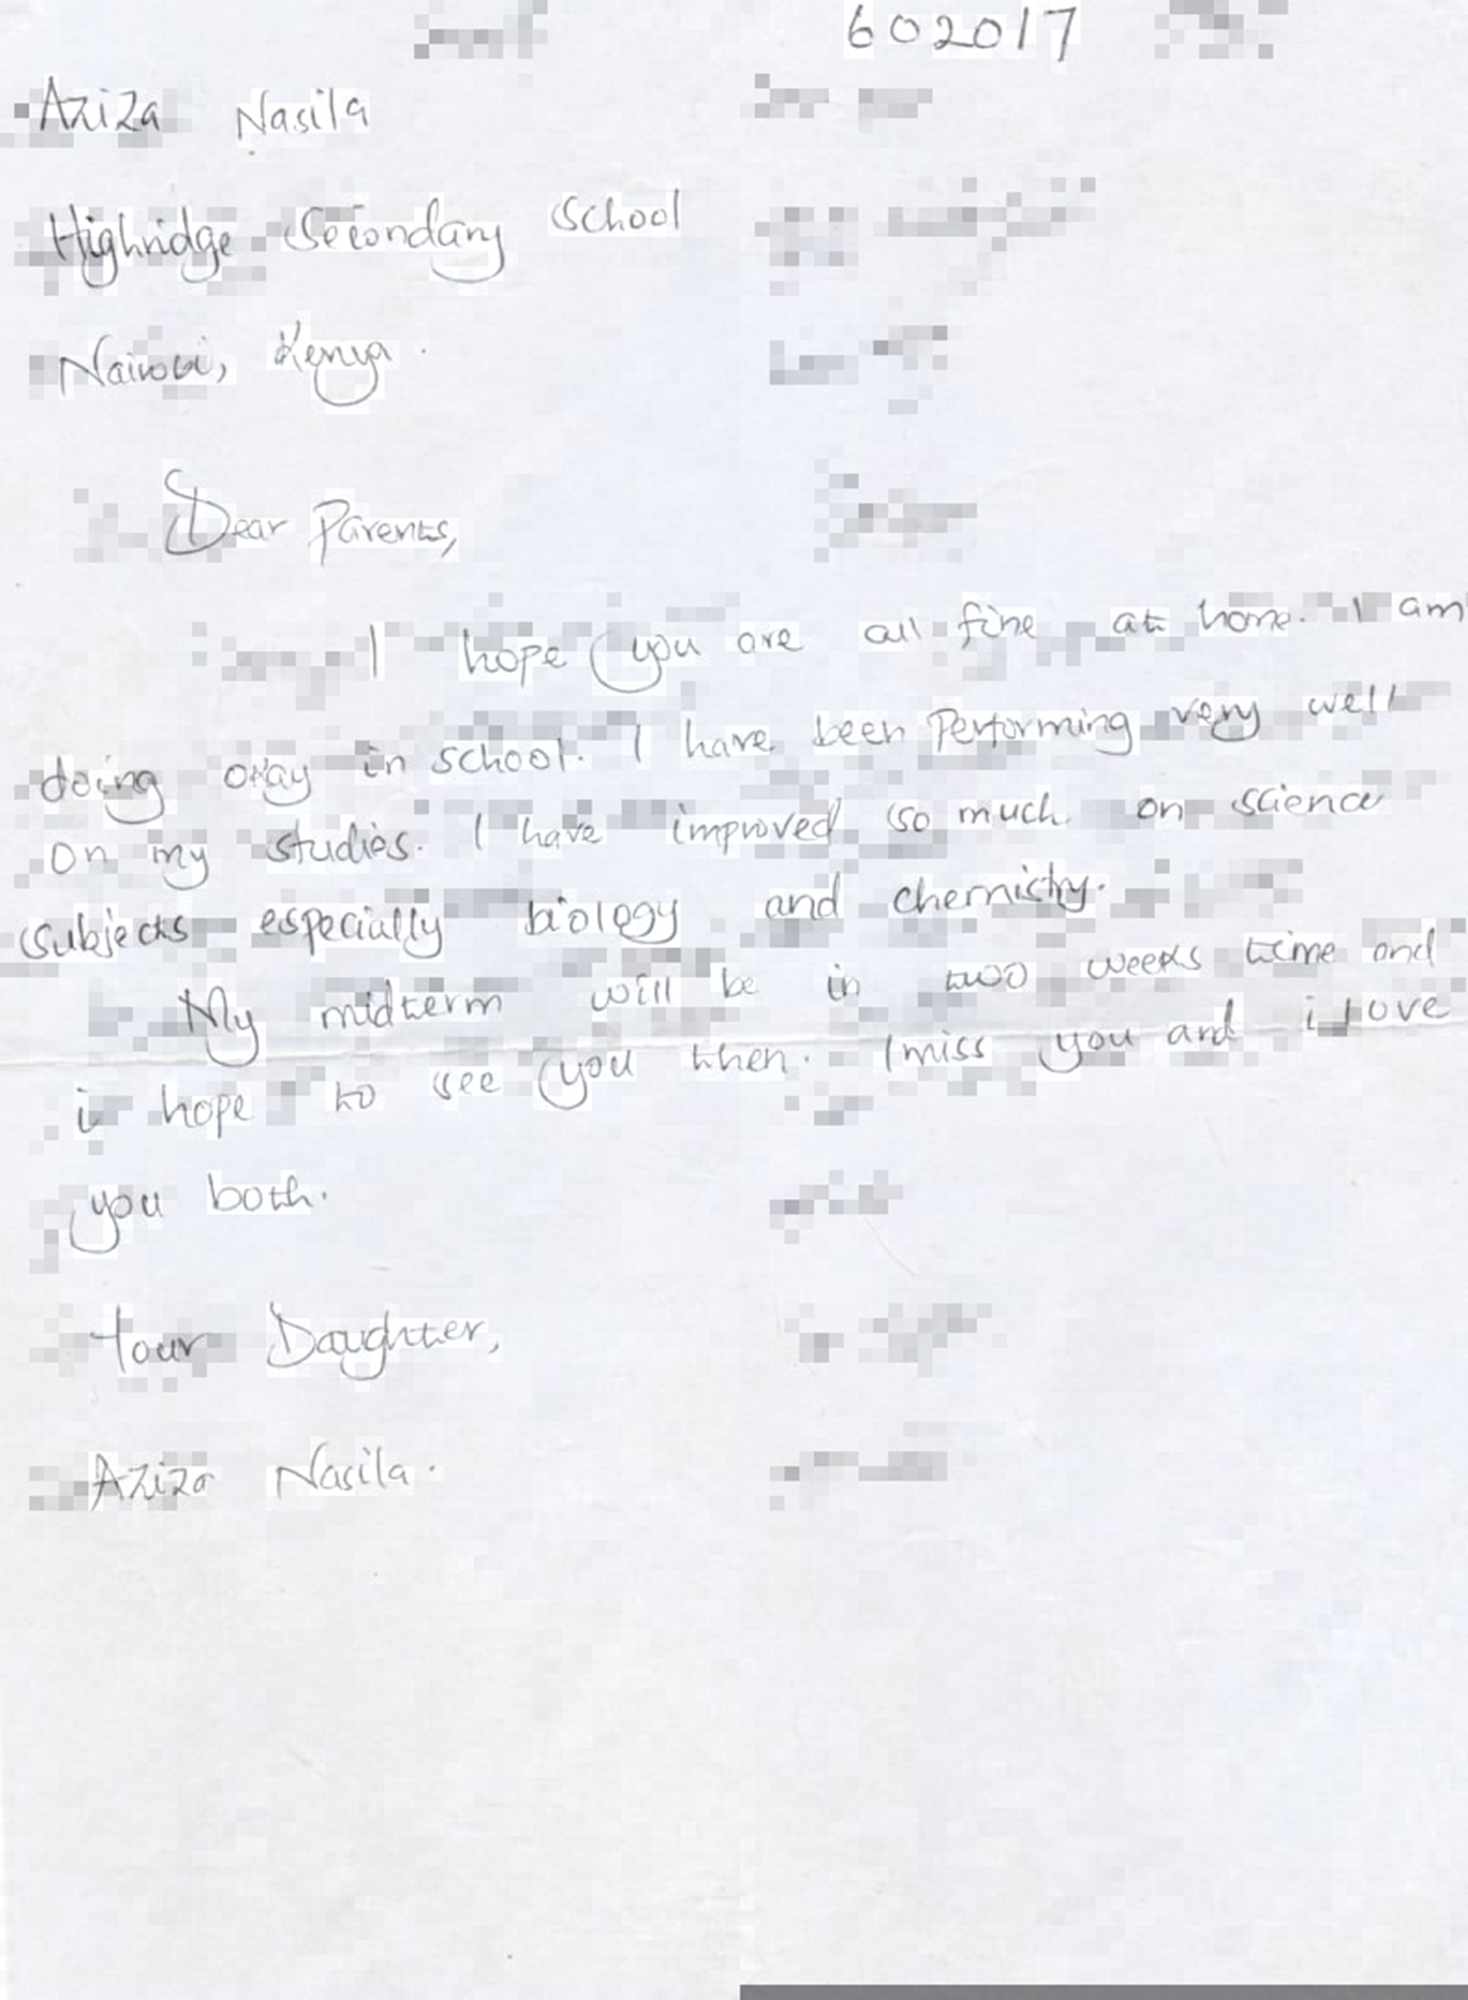 602017
Aziza Nasila
Highridge Secondary School
Nairobi, Kenya.
Dear Parents,
I hope you are all fine at home. I am
doing okay in school. I have been Performing very well
on my studies. I have improved so much on science
subjects especially biology and chemistry.
My midterm will be in two weeks time and
i hope to see you then. I miss you and i love
you both.
Your Daughter,
Aziza Nasila.